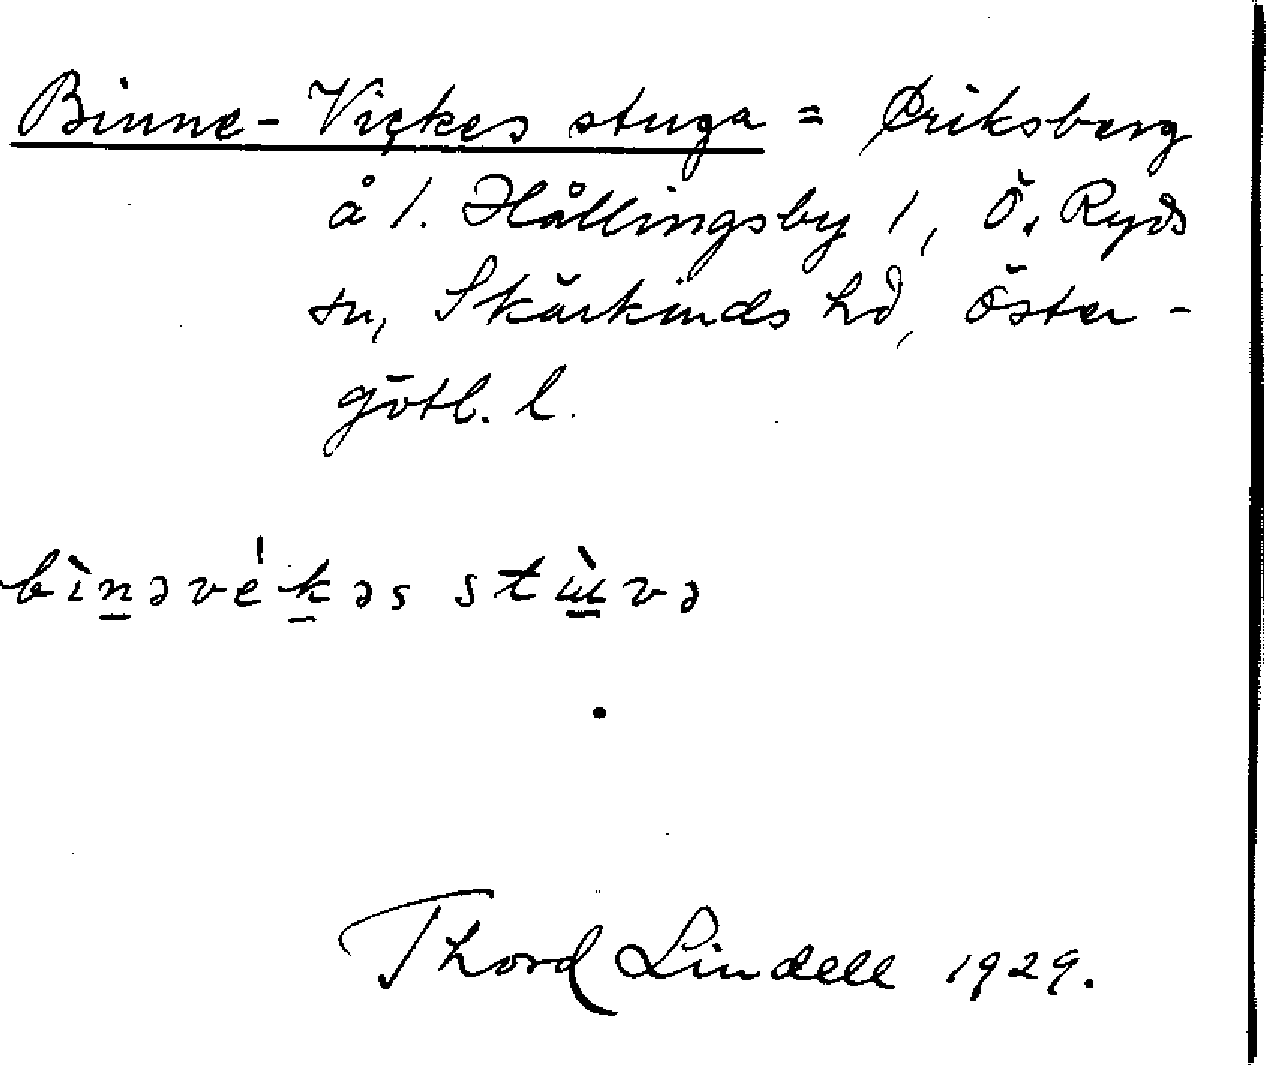 Binne-Vickes stuga = Eriksberg
å 1. Hållingsby 1, Ö. Ryds
sn, Skärkinds hd, Öster-
götl. l.
bìnəvékəs stùvə
Thord Lindell 1929.